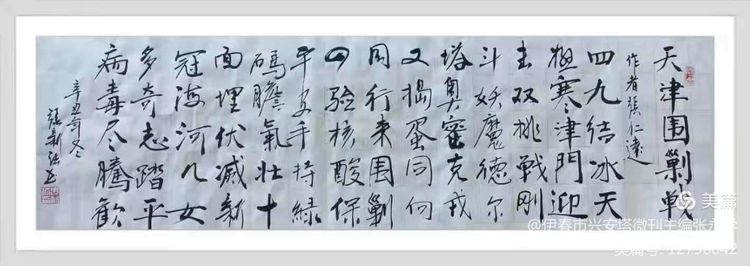 天津围剿戰
作者張仁遠
四九结冰天
极寒津門迎
来双挑戰刚
斗妖魔德尔
塔奥蜜克戎
又捣蛋同向
同行来围剿
四验核酸保
平安手持绿
碼膽氣壮十
面埋伏滅新
冠海河儿女
多奇志踏平
病毒尽騰歡
辛丑年冬
張新
美篇
@伊春市兴安塔微刊主编张永
美篇号: 12796642